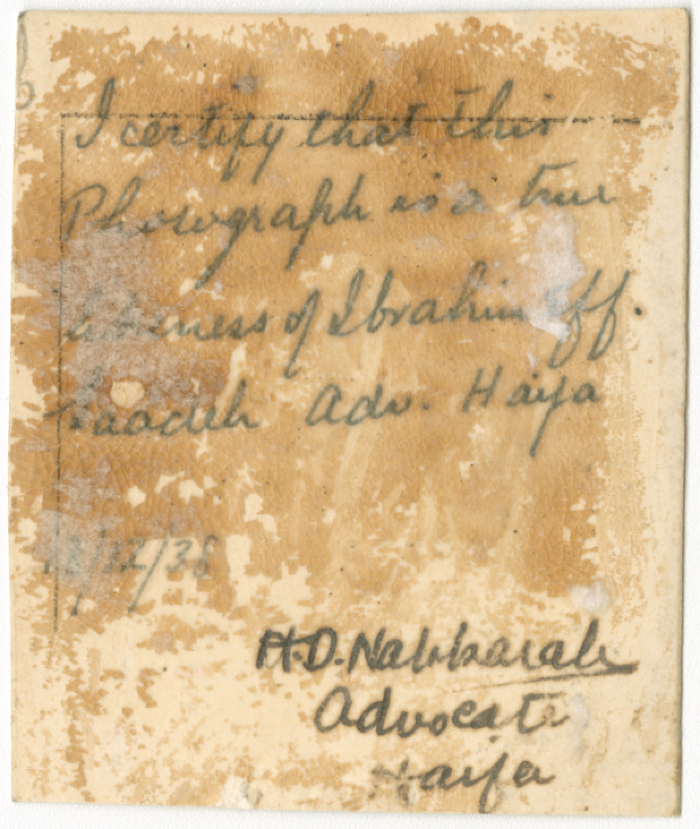 I certify that this
Photograph is a true
likeness of Ibrahim Eff.
Saadeh Adv. Haifa
/12/38
H.D. Nakkarah
Advocate
Haifa